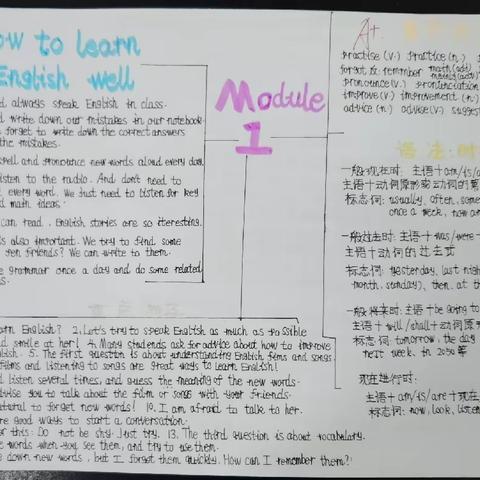 ow to learn
English well
always speak English in class.
write down our mistakes in our notebook
forget to write down the correct answers
the mistakes.
spell and pronounce new words aloud every day.
listen to the radio. And don't need to
every word. We just need to listen for key
main ideas.
can read. English stories are so iteresting.
is also important. We try to find some
pen friends? We can write to them.
grammar once a day and do some related
Module
1
A+
practise (v.) practice (n.)
forget 反 remember
pronounce (v.) pronunciation
improve (v.) improvement (n.)
advice (n.) advise (v.) suggest
语法:时
一般现在时: 主语+am/is/a
主语+动词原形或动词的第
标志词: usually, often, some
once a week, now an
一般过去时: 主语+was/were
主语+动词的过去式
标志词: yesterday, last night
month, sunday), then, at th
一般将来时: 主语+be going to
主语+will/shall+动词原
标志词: tomorrow, the day
next week, in 2050 等
现在进行时:
主语+am/is/are+现在
标志词: now, look, listen
learn English? 2. Let's try to speak English as much as possible
smile at her! 4. Many students ask for advice about how to improve
English. 5. The first question is about understanding English films and songs.
films and listening to songs are great ways to learn English!
listen several times, and guess the meaning of the new words.
advise you to talk about the film or songs with your friends.
natural to forget new words! 10. I am afraid to talk to her.
are good ways to start a conversation.
this: Do not be shy. Just try. 13. The third question is about vocabulary.
words when you see them, and try to use them.
down new words, but I forget them quickly. How can I remember them?